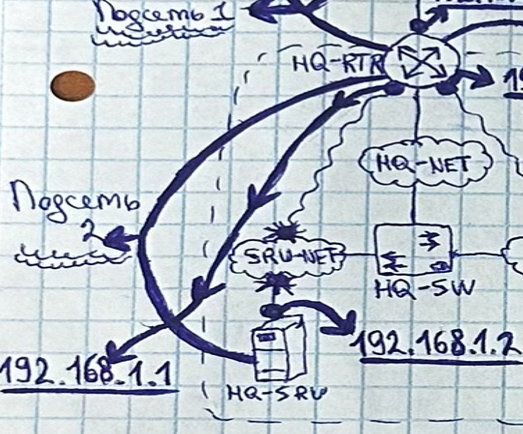 Подсеть 1
HQ-RTR
19
HQ-NET
Подсеть
2
SRV-NET
HQ-SW
192.168.1.2
192.168.1.1
HQ-SRV